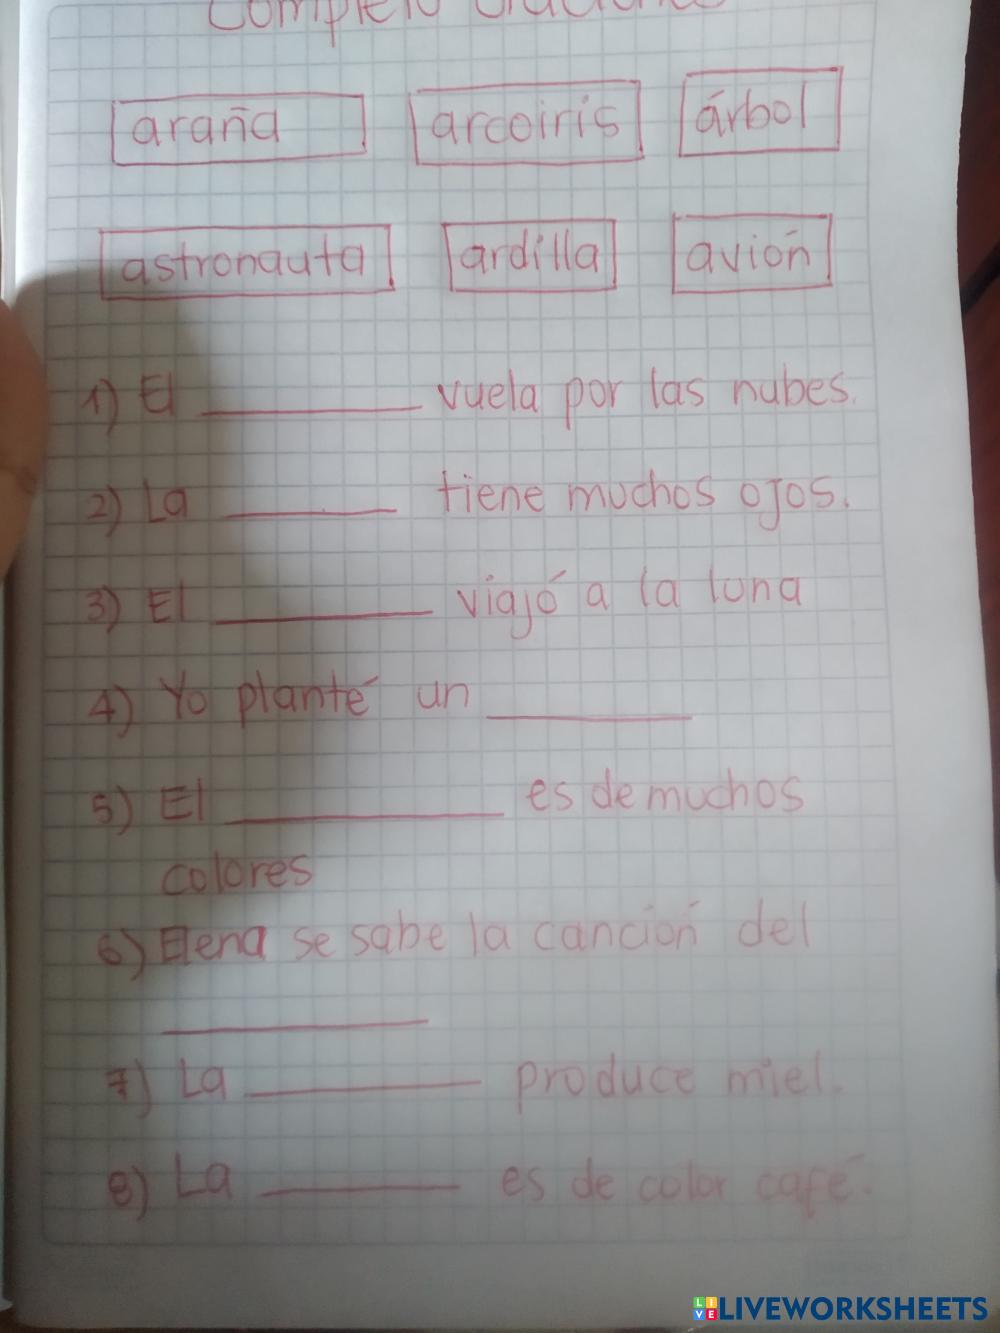 Completo oraciones
araña arcoiris árbol
astronauta ardilla avión
1) El __________ vuela por las nubes.
2) La __________ tiene muchos ojos.
3) El __________ viajó a la luna
4) Yo planté un __________
5) El __________ es de muchos
colores
6) Elena se sabe la canción del
__________
7) La __________ produce miel.
8) La __________ es de color café.
LIVE LIVEWORKSHEETS